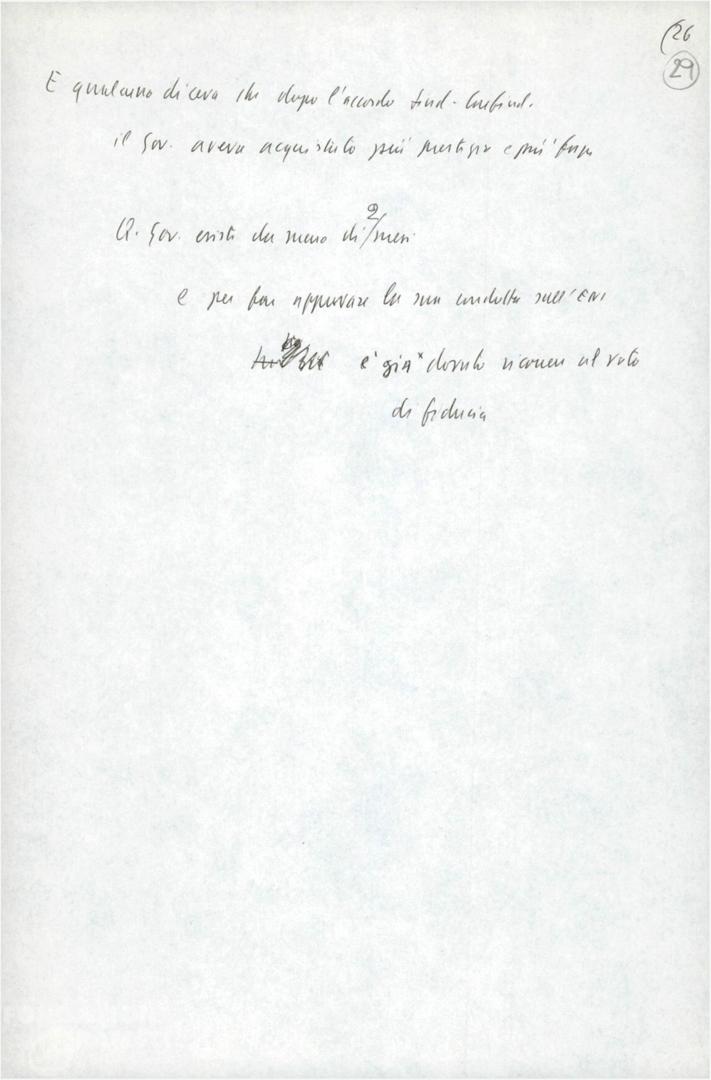 (26
29
E qualcuno diceva che dopo l'accordo sind-Confind.
il Gov. aveva acquistato più prestigio e più forza
Q. Gov. esiste da meno di 2 mesi
e per far approvare la sua condotta sull'ENI
è già dovuto ricorrere al voto
di fiducia